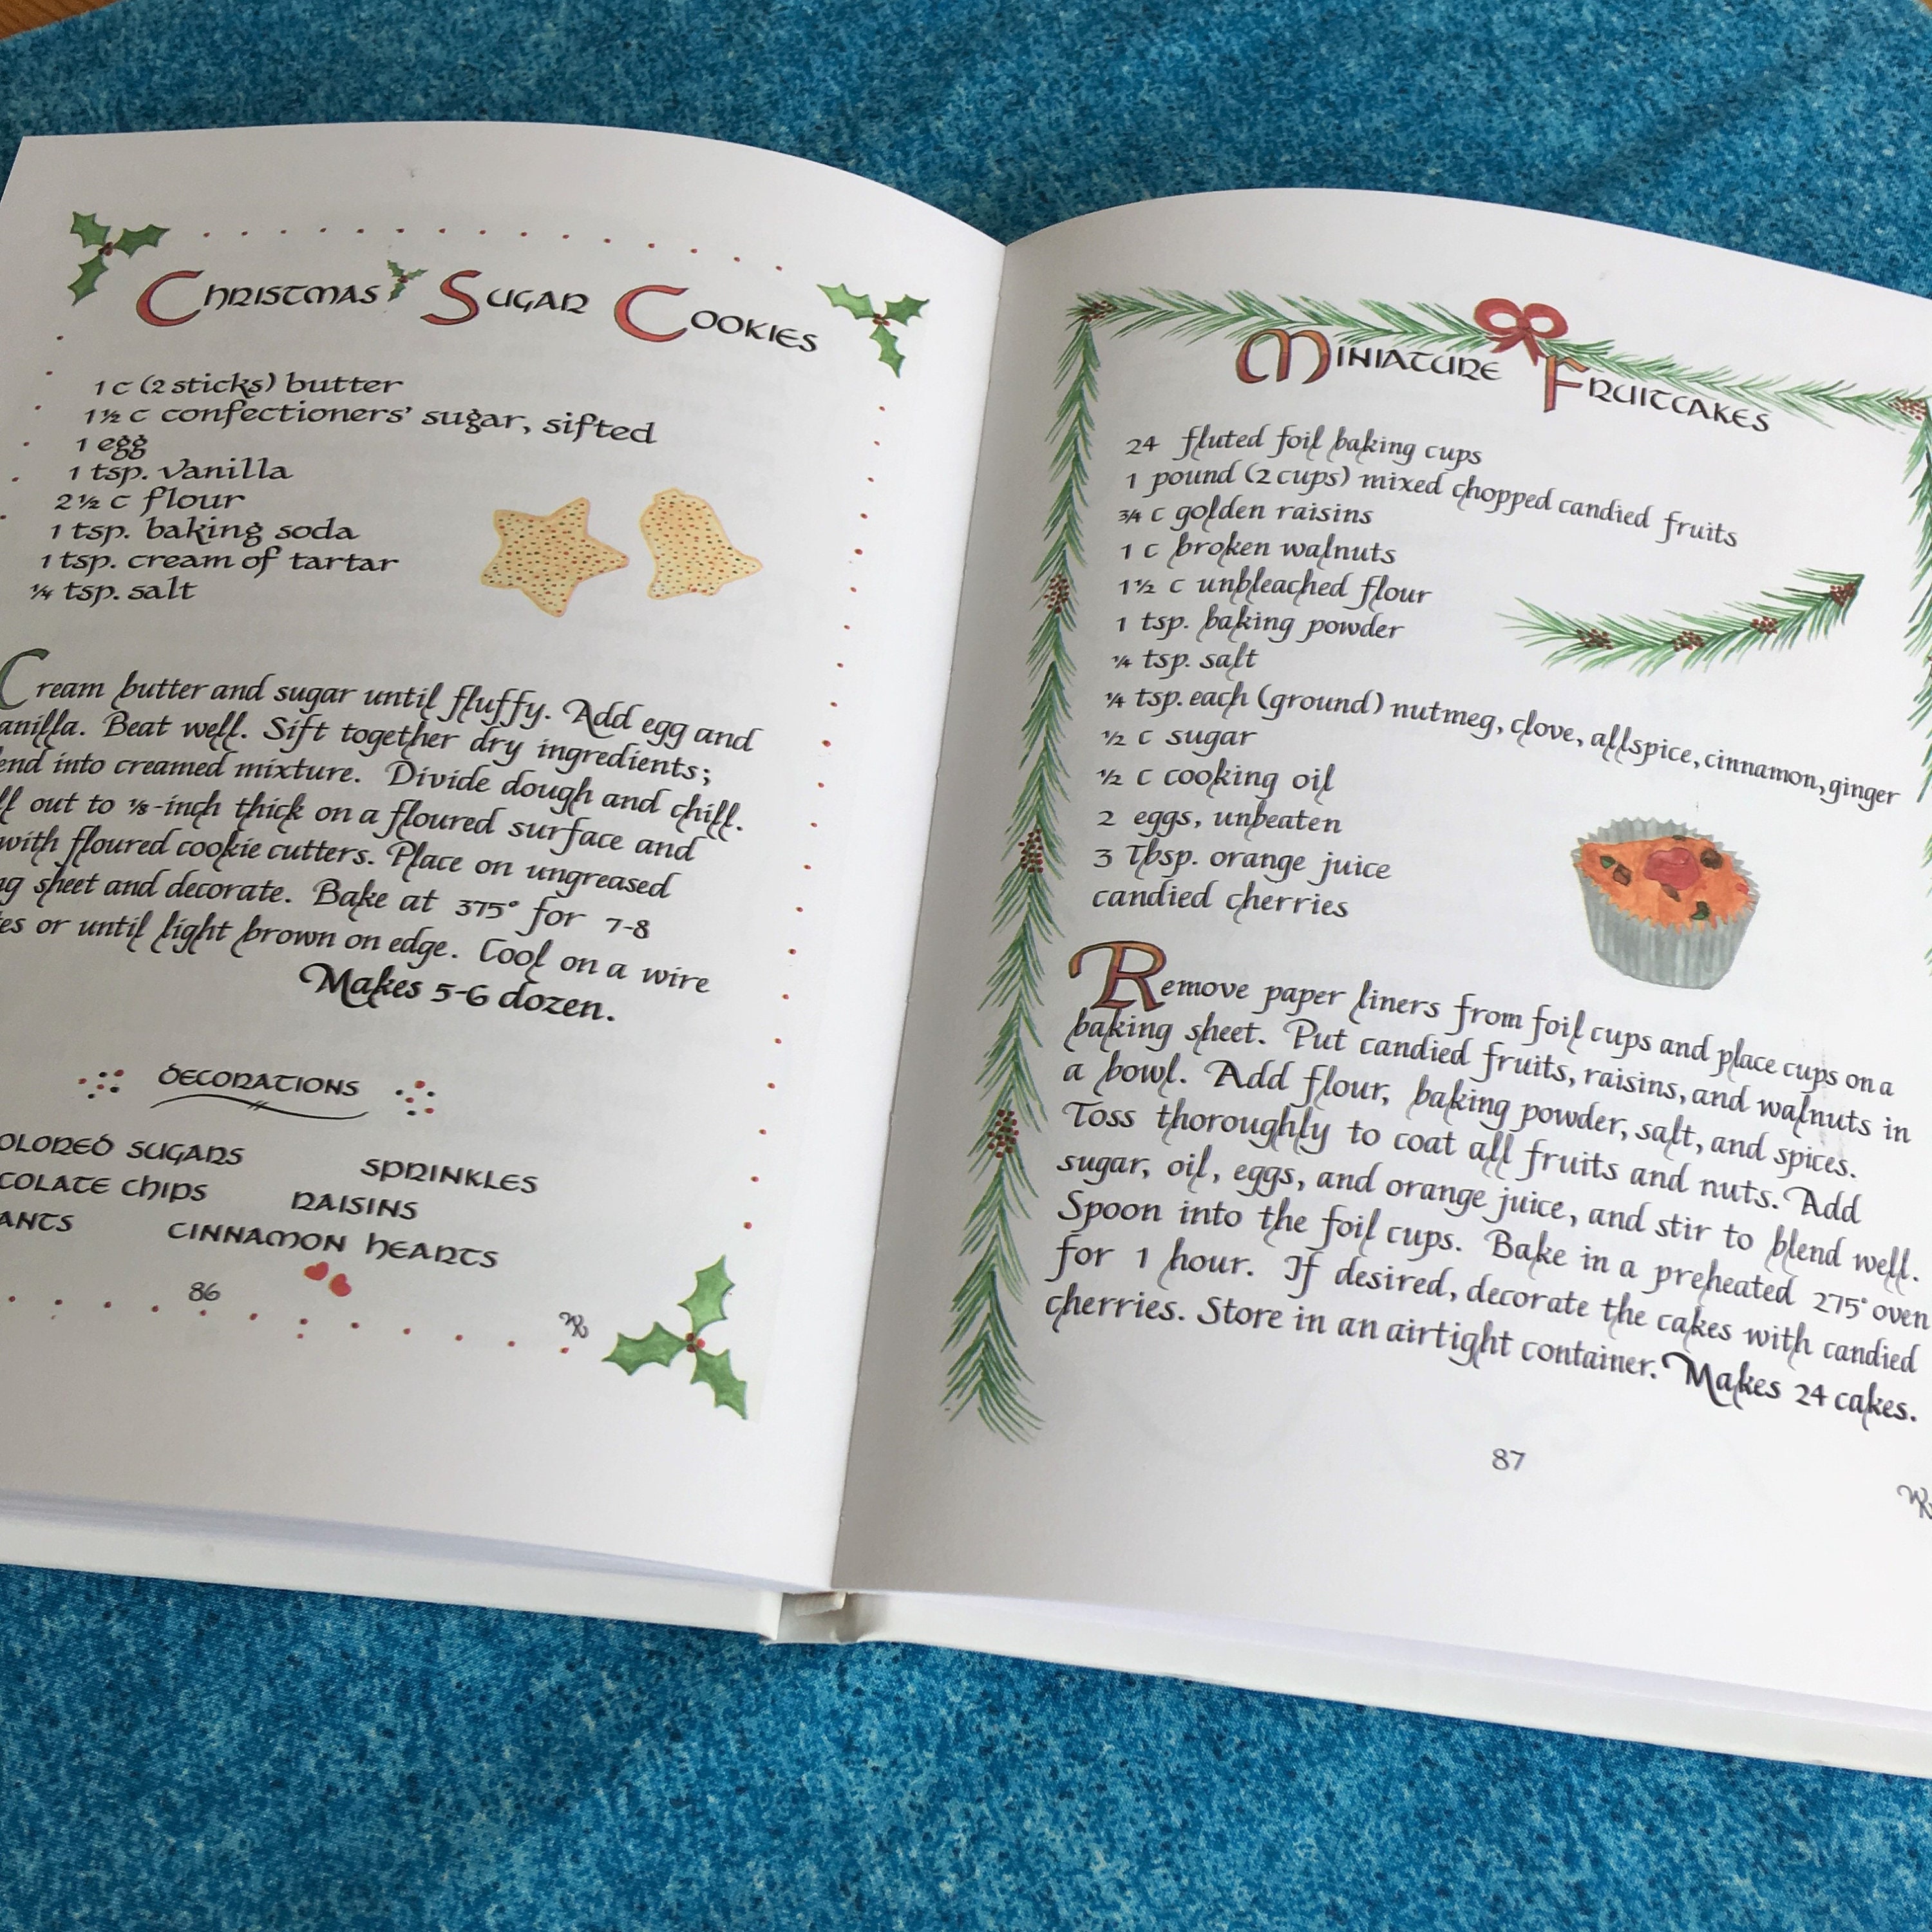 Christmas Sugar Cookies
1 c (2 sticks) butter
1½ c confectioners' sugar, sifted
1 egg
1 tsp. vanilla
2½ c flour
1 tsp. baking soda
1 tsp. cream of tartar
¼ tsp. salt
Cream butter and sugar until fluffy. Add egg and
anilla. Beat well. Sift together dry ingredients;
end into creamed mixture. Divide dough and chill.
ll out to ⅛-inch thick on a floured surface and
with floured cookie cutters. Place on ungreased
ng sheet and decorate. Bake at 375° for 7-8
es or until light brown on edge. Cool on a wire
Makes 5-6 dozen.
Decorations
olored sugars sprinkles
colate chips raisins
ants cinnamon hearts
86
Miniature Fruitcakes
24 fluted foil baking cups
1 pound (2 cups) mixed chopped candied fruits
¾ c golden raisins
1 c broken walnuts
1½ c unbleached flour
1 tsp. baking powder
¼ tsp. salt
¼ tsp. each (ground) nutmeg, clove, allspice, cinnamon, ginger
½ c sugar
½ c cooking oil
2 eggs, unbeaten
3 Tbsp. orange juice
candied cherries
Remove paper liners from foil cups and place cups on a
baking sheet. Put candied fruits, raisins, and walnuts in
a bowl. Add flour, baking powder, salt, and spices.
Toss thoroughly to coat all fruits and nuts. Add
sugar, oil, eggs, and orange juice, and stir to blend well.
Spoon into the foil cups. Bake in a preheated 275° oven
for 1 hour. If desired, decorate the cakes with candied
cherries. Store in an airtight container. Makes 24 cakes.
87